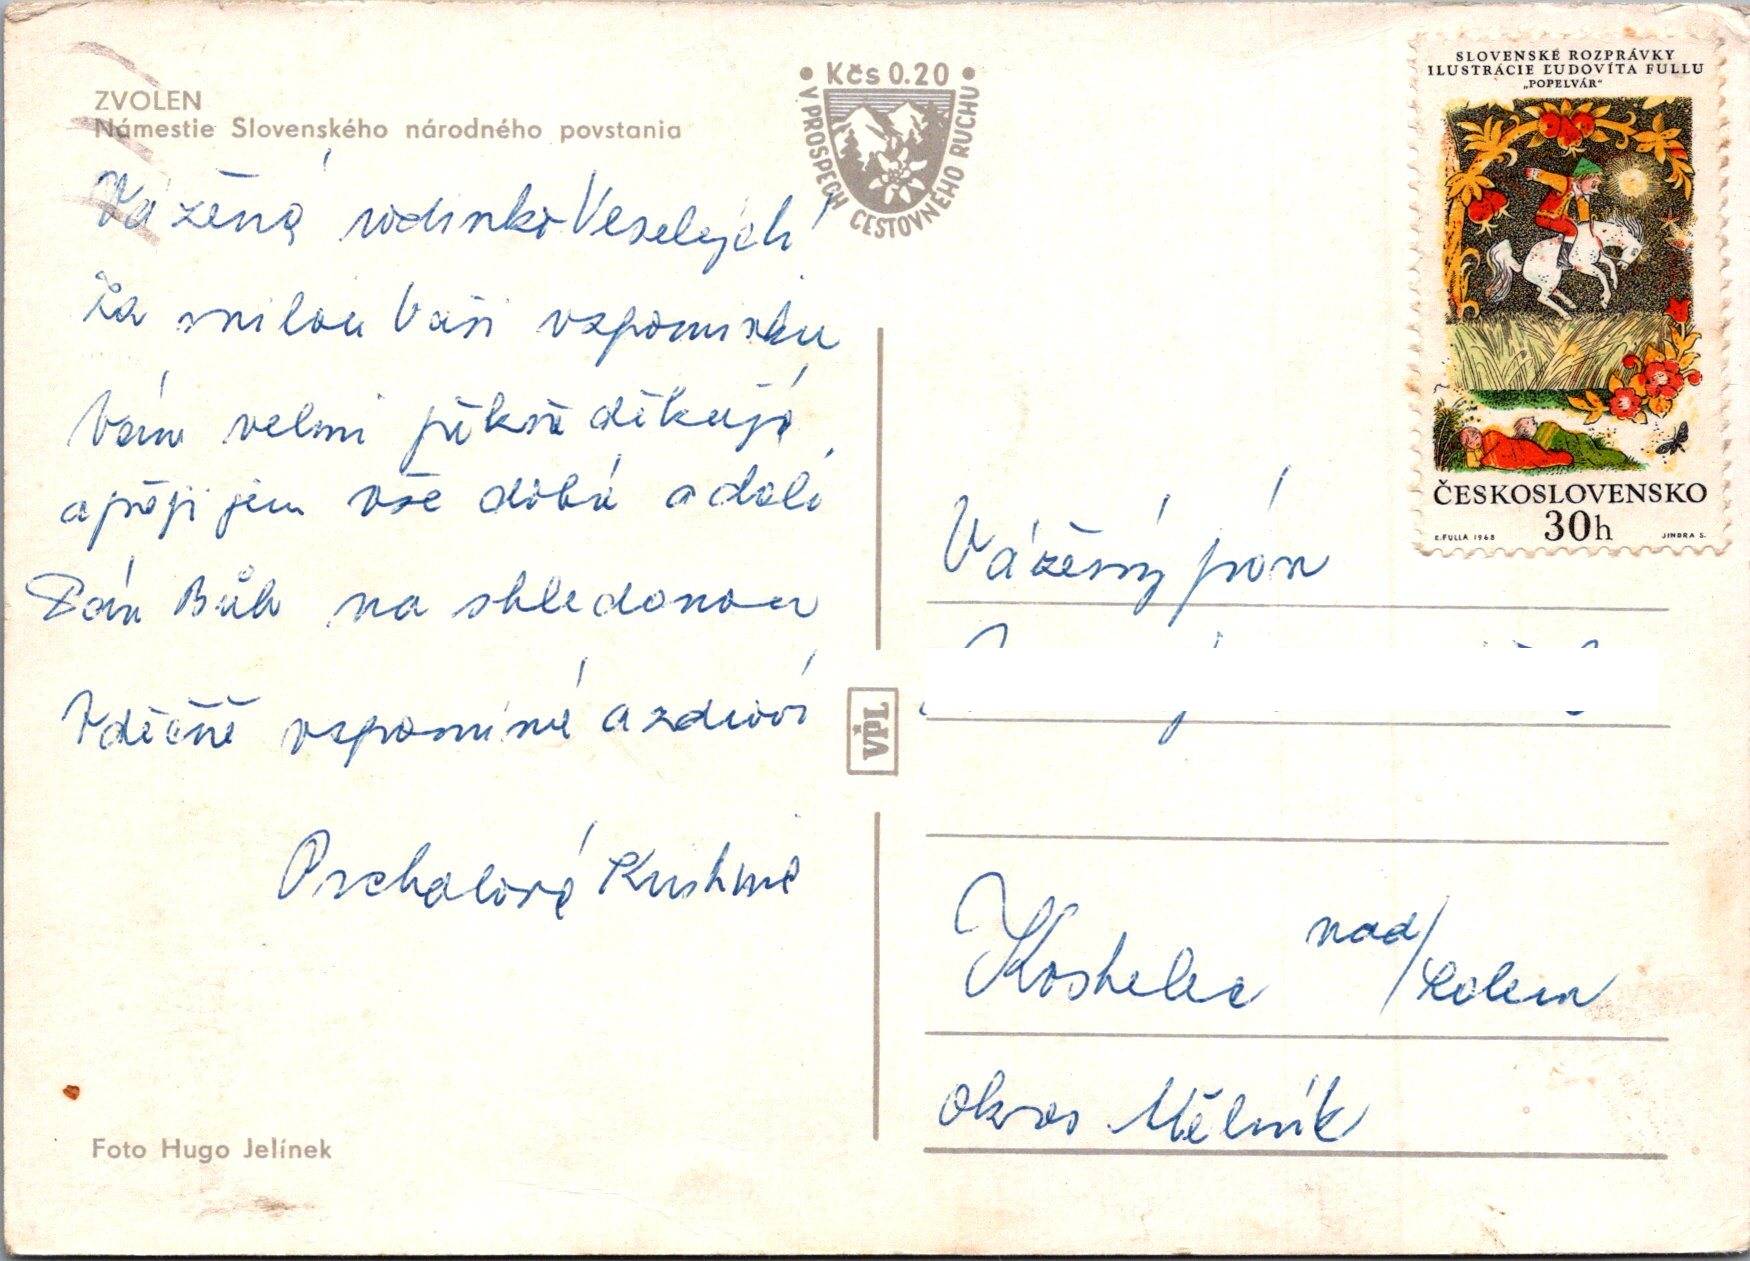 ZVOLEN
Námestie Slovenského národného povstania
• Kčs 0.20 •
V PROSPECH CESTOVNÉHO RUCHU
SLOVENSKÉ ROZPRÁVKY
ILUSTRÁCIE ĽUDOVÍTA FULLU
„POPELVÁR"
ČESKOSLOVENSKO
30h
Ľ. FULLA 1968 JINDRA S.
Vážená rodinko Veselých
Za milou Vaši vzpomínku
Vám velmi pěkně děkuji
a přeji jen vše dobré a dali
Pán Bůh na shledanou
Vděčně vzpomíná a zdraví
Kristina
VPL
Vážený pán
Kostelec nad/Labem
okres Mělník
Foto Hugo Jelínek